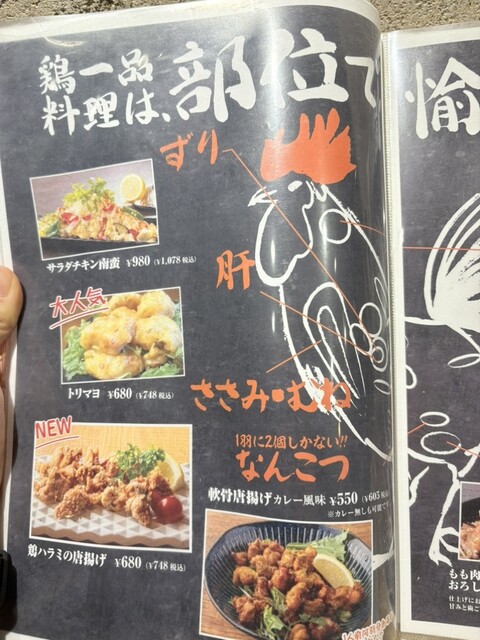 鶏一品
料理は、部位で
愉
ずり
サラダチキン南蛮 ¥980 (¥1,078税込)
肝
大人気
トリマヨ ¥680 (¥748税込)
ささみ・むね
NEW
1羽に2個しかない!!
なんこつ
軟骨唐揚げカレー風味 ¥550 (¥605税込)
※カレー無しも可能です
鶏ハラミの唐揚げ ¥680 (¥748税込)
もも肉
おろし
仕上げにお
甘みと歯ご